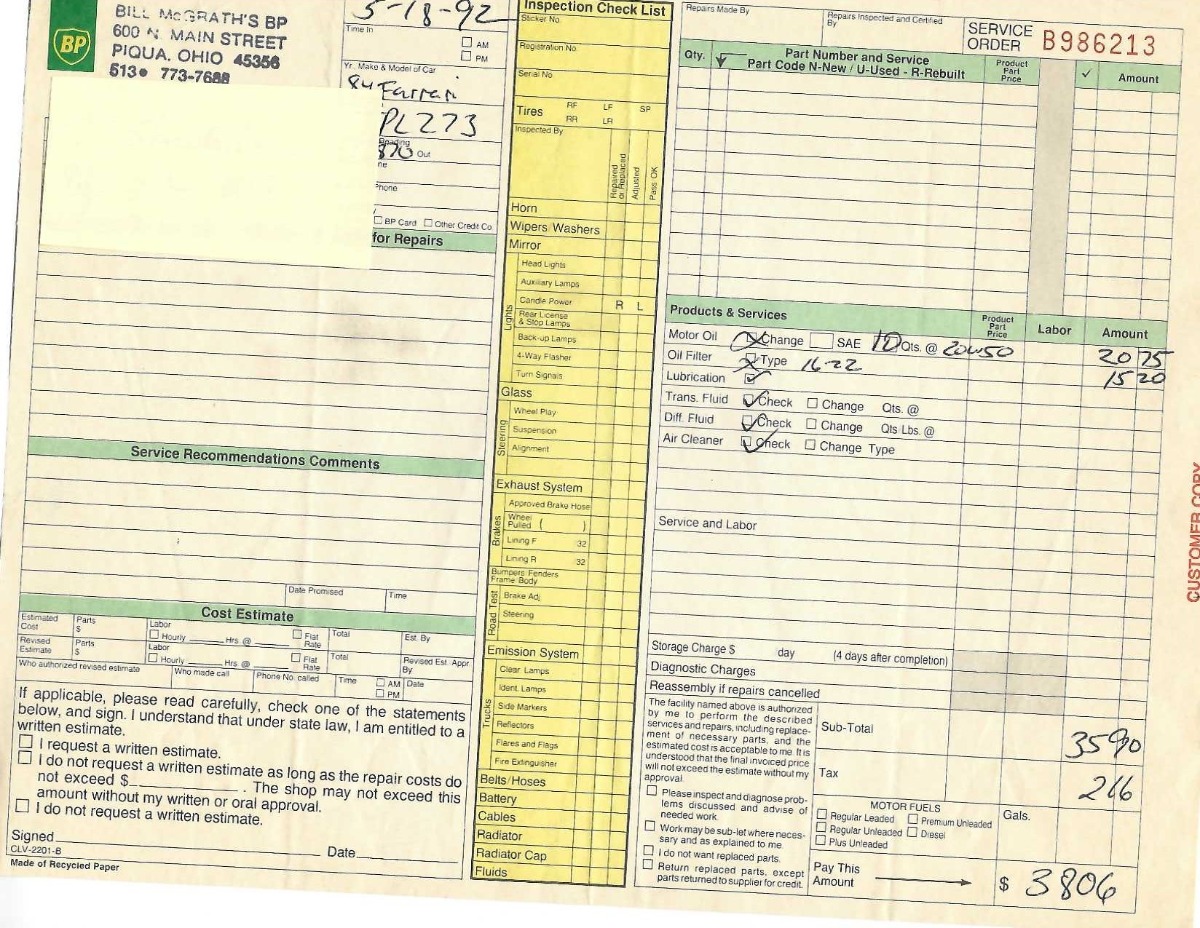 BP
BILL McGRATH'S BP
600 N. MAIN STREET
PIQUA, OHIO 45356
513• 773-7688
5-18-92
Time In
AM
PM
Yr. Make & Model of Car
84 Ferrari
PL 273
870 Out
Phone
BP Card Other Credit Co.
for Repairs
Service Recommendations Comments
Date Promised Time
Cost Estimate
Estimated Cost Parts $ Labor Hourly Hrs @ Flat Rate Total Est. By
Revised Estimate Parts $ Labor Hourly Hrs @ Flat Rate Total Revised Est. Appr. By
Who authorized revised estimate Who made call Phone No. called Time AM PM Date
If applicable, please read carefully, check one of the statements
below, and sign. I understand that under state law, I am entitled to a
written estimate.
I request a written estimate.
I do not request a written estimate as long as the repair costs do
not exceed $ . The shop may not exceed this
amount without my written or oral approval.
I do not request a written estimate.
Signed Date
CLV-2201-B
Made of Recycled Paper
Inspection Check List
Sticker No.
Registration No.
Serial No.
Tires RF LF SP
RR LR
Inspected By
Repaired or Replaced
Adjusted
Pass OK
Horn
Wipers/Washers
Mirror
Lights
Head Lights
Auxiliary Lamps
Candle Power R L
Rear License & Stop Lamps
Back-up Lamps
4-Way Flasher
Turn Signals
Glass
Steering
Wheel Play
Suspension
Alignment
Exhaust System
Brakes
Approved Brake Hose
Wheel Pulled ( )
Lining F 32
Lining R 32
Bumpers Fenders Frame Body
Road Test
Brake Adj.
Steering
Emission System
Trucks
Clear Lamps
Ident. Lamps
Side Markers
Reflectors
Flares and Flags
Fire Extinguisher
Belts/Hoses
Battery
Cables
Radiator
Radiator Cap
Fluids
Repairs Made By Repairs Inspected and Certified By
SERVICE ORDER B986213
Qty. Part Number and Service
Part Code N-New / U-Used - R-Rebuilt
Product Part Price
✓ Amount
Products & Services Product Part Price Labor Amount
Motor Oil Change SAE 10 Qts. @ 20W50 20 75
Oil Filter Type 16-22 15 20
Lubrication
Trans. Fluid Check Change Qts. @
Diff. Fluid Check Change Qts Lbs. @
Air Cleaner Check Change Type
Service and Labor
Storage Charge $ day (4 days after completion)
Diagnostic Charges
Reassembly if repairs cancelled
The facility named above is authorized
by me to perform the described
services and repairs, including replace-
ment of necessary parts, and the
estimated cost is acceptable to me. It is
understood that the final invoiced price
will not exceed the estimate without my
approval.
Please inspect and diagnose prob-
lems discussed and advise of
needed work.
Work may be sub-let where neces-
sary and as explained to me.
I do not want replaced parts.
Return replaced parts, except
parts returned to supplier for credit.
Sub-Total 3590
Tax 216
MOTOR FUELS Gals.
Regular Leaded Premium Unleaded
Regular Unleaded Diesel
Plus Unleaded
Pay This
Amount $ 3806
CUSTOMER COPY